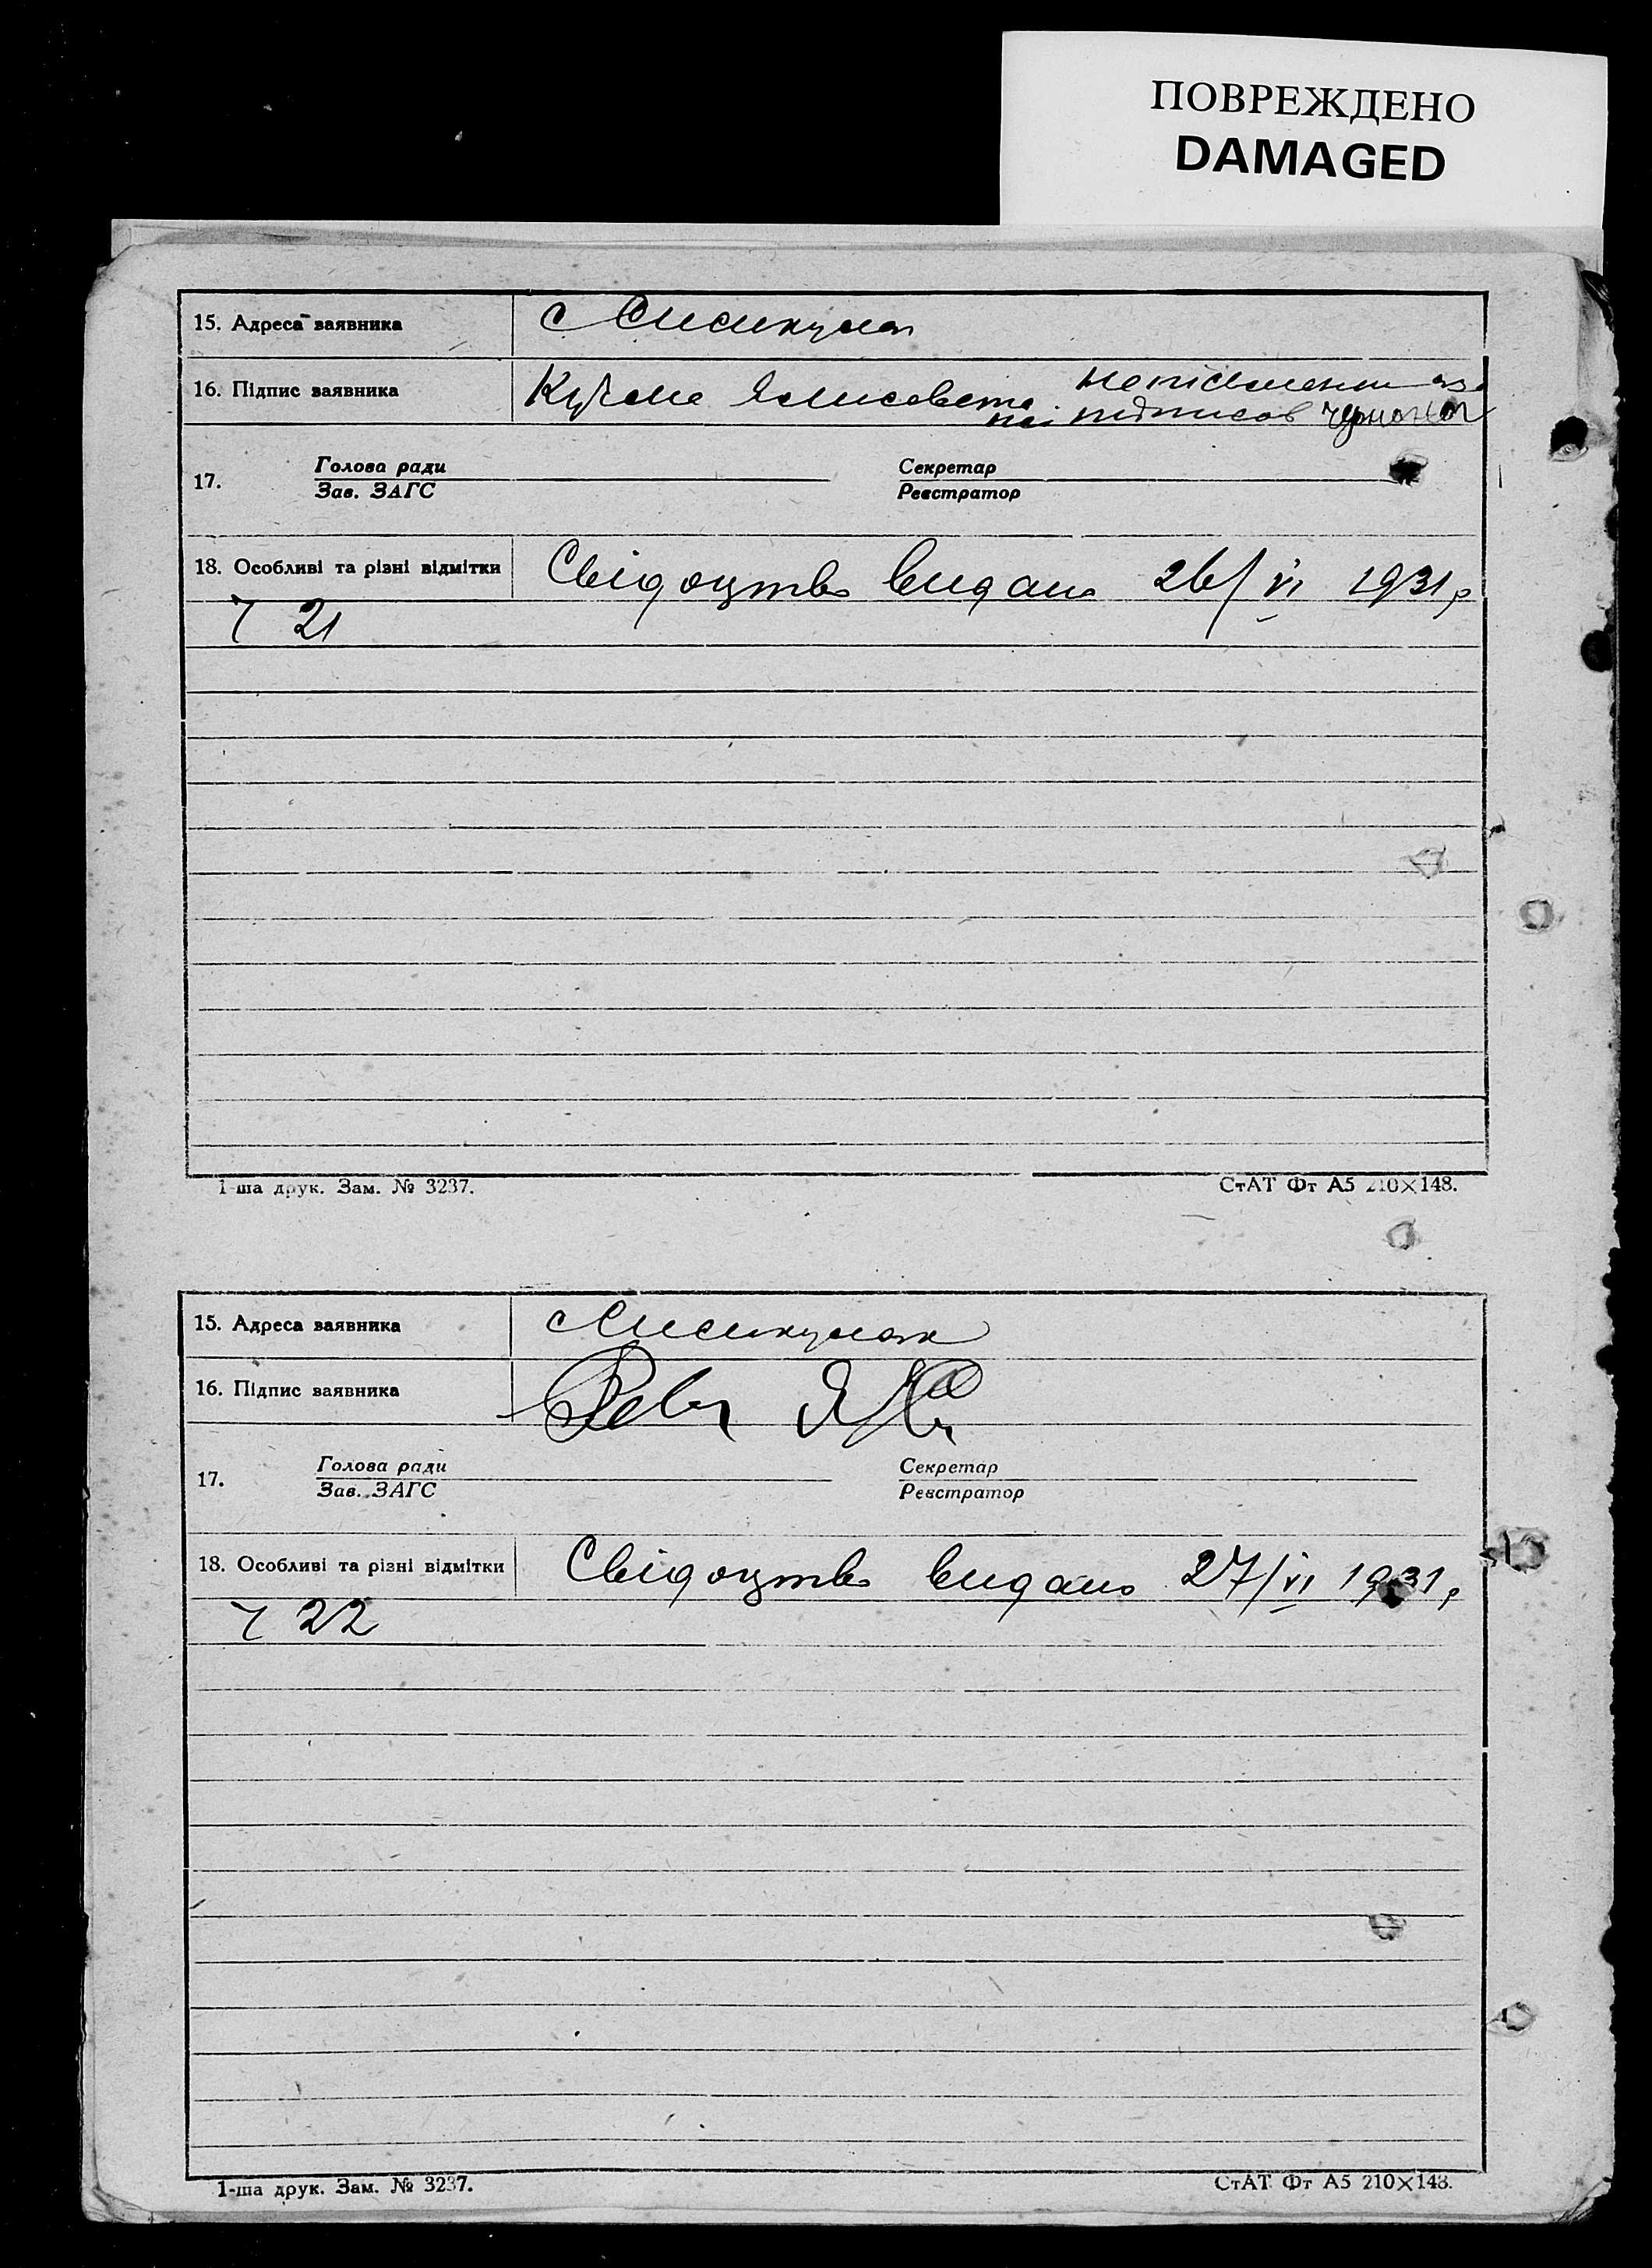 ПОВРЕЖДЕНО
DAMAGED
15. Адреса заявника с
16. Підпис заявника
17. Голова ради Секретар
Зав. ЗАГС Реєстратор
18. Особливі та різні відмітки Свідоцтво видано 26/VI 1931 р
21
1-ша друк. Зам. № 3237. СтАТ Фт А5 210×148.
15. Адреса заявника с
16. Підпис заявника
17. Голова ради Секретар
Зав. ЗАГС Реєстратор
18. Особливі та різні відмітки Свідоцтво видано 27/VI 1931 р
22
1-ша друк. Зам. № 3237. СтАТ Фт А5 210×148.